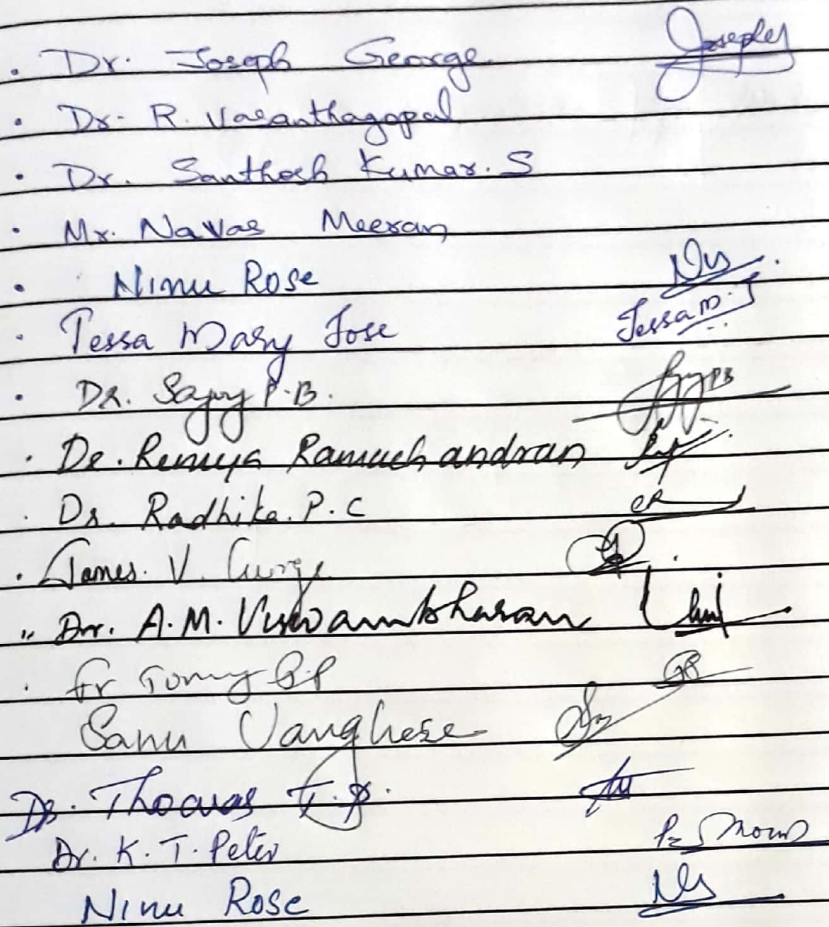 . Dr. Joseph George Joseph
. Dr. R. Vasanthagopal
. Dr. Santhosh Kumar. S
. Mr. Navas Meeran
. Ninu Rose
. Tessa Mary Jose Tessa M. J
. Dr. Sajoy P.B.
. De. Remya Ramachandran
. Dr. Radhika. P. C
. James. V.
" Dr. A.M. Viswambharan
. Fr Tomy
Sanu Varghese
Dr. Thomas T.P.
Dr. K. T. Peter
Ninu Rose